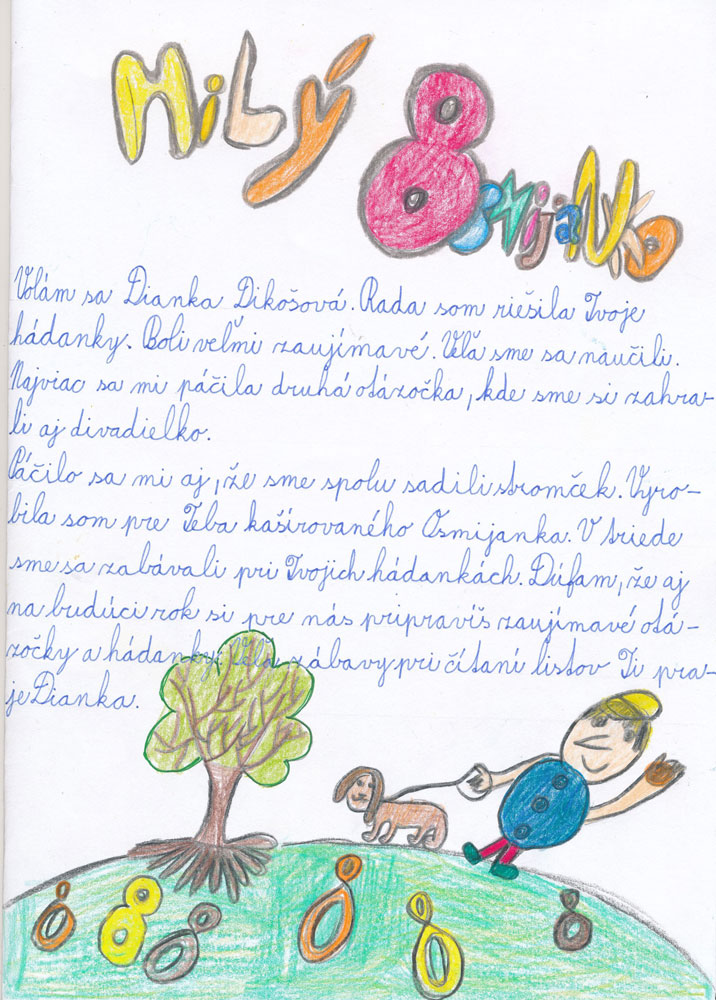 Milý
8smijanko
Volám sa Dianka Dikošová. Rada som riešila Tvoje
hádanky. Boli veľmi zaujímavé. Veľa sme sa naučili.
Najviac sa mi páčila druhá otázočka, kde sme si zahra-
li aj divadielko.
Páčilo sa mi aj, že sme spolu sadili stromček. Vyro-
bila som pre Teba kašírovaného Osmijanka. V triede
sme sa zabávali pri Tvojich hádankách. Dúfam, že aj
na budúci rok si pre nás pripravíš zaujímavé otá-
zočky a hádanky. Veľa zábavy pri čítaní listov Ti pra-
je Dianka.